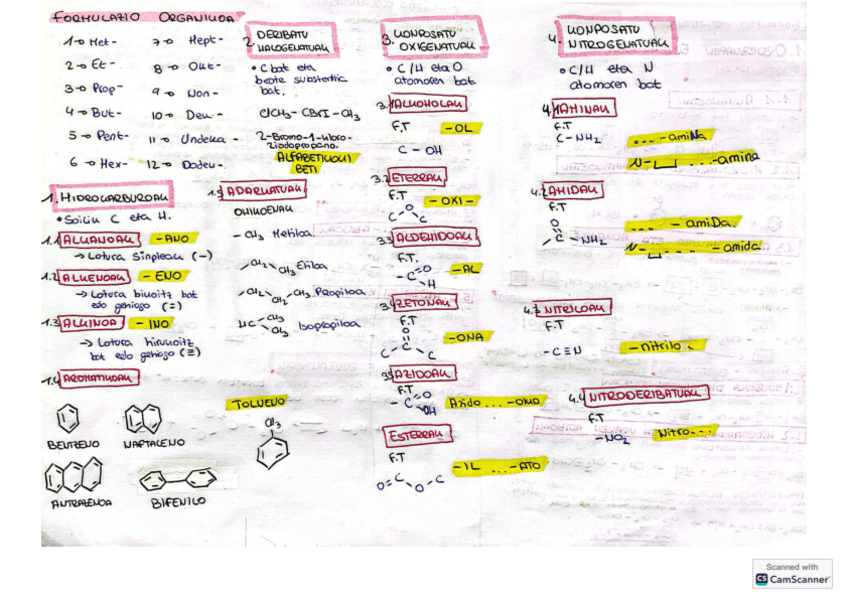 FORMULAZIO ORGANIKOA
1→ Met-
2→ Et-
3→ Prop-
4→ But-
5→ Pent-
6→ Hex-
7→ Hept-
8→ Okt-
9→ Non-
10→ Dek-
11→ Undeka-
12→ Dodek-
1. HIDROKARBUROAK
• Soilik C eta H.
1.1 ALKANOAK -ANO
→ Lotura sinpleak (-)
1.2 ALKENOAK -ENO
→ Lotura bikoitz bat
edo gehiago (=)
1.3 ALKINOA -INO
→ Lotura hirukoitz
bat edo gehiago (≡)
1.4 AROMATIKOAK
BENTZENO
NAFTALENO
ANTRAZENOA
BIFENILO
TOLUENO
CH3
1.5 ADARKATUAK
OHIKOENAK
-CH3 Metiloa
CH2 CH3 Etiloa
CH2 CH2 CH3 Propiloa
HC CH3 CH3 Isopropiloa
2. DERIBATU
HALOGENATUAK
• C bat eta
beste substantzia
bat.
ClCH3- CBrI-CH3
2-Bromo-1-kloro-
2-iodopropano.
ALFABETIKOKI
BETI
3. KONPOSATU
OXIGENATUAK
• C/H eta O
atomoren bat.
3.1 ALKOHOLAK
F.T -OL
C-OH
3.2 ETERRAK
F.T -OXI-
C O C
3.3 ALDEHIDOAK
F.T. -AL
-C O H
3.4 ZETONAK
F.T -ONA
O
C C C
3.5 AZIDOAK
F.T Azido ... -OIKO
-C O OH
ESTERRAK
F.T -IL ... -ATO
O=C O-C
4. KONPOSATU
NITROGENATUAK
• C/H eta N
atomoren bat
4.1 AMINAK
F.T
C-NH2 ... -amiNa
N- ... -amina
4.2 AMIDAK
F.T
O
C-NH2 ... -amiDa.
N- ... -amida
4.3 NITRILOAK
F.T
-C≡N -nitrilo.
4.4 NITRODERIBATUAK
F.T
-NO2 Nitro-...
Scanned with
CS CamScanner